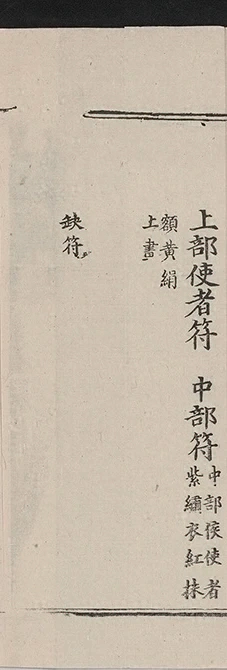 上部使者符　中部符中部侯使者
紫繡衣紅抹
額黄絹
上書
缺符